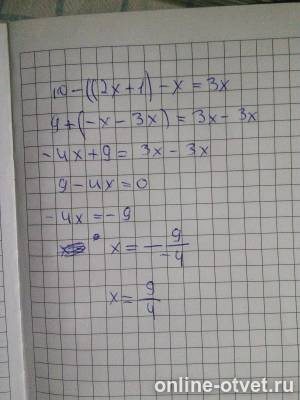 10-((2x+1)-x=3x
9+(-x-3x)=3x-3x
-4x+9=3x-3x
9-4x=0
-4x=-9
x=-9/-4
x=9/4
online-otvet.ru